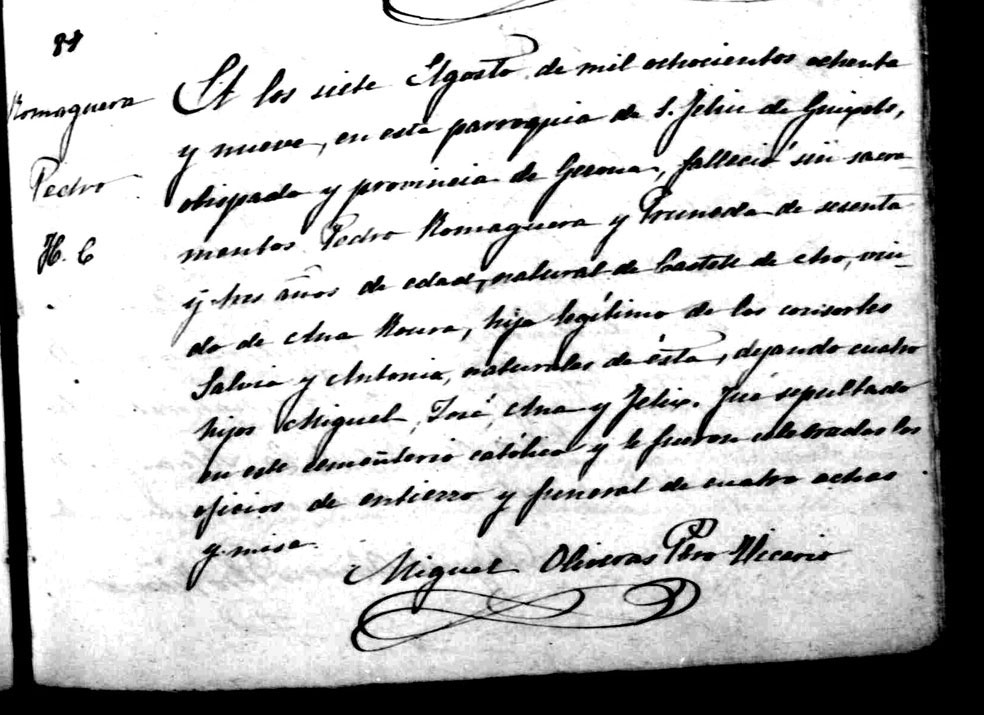 Romaguera
Pedro
H. C
A los siete Agosto de mil ochocientos ochenta
y nueve, en esta parroquia de S. Feliu de Guixols,
obispado y provincia de Gerona, falleció sin sacra-
mentos Pedro Romaguera y Pruneda de sesenta
y tres años de edad, natural de Castell de Aro, viu-
do de Ana Roura, hijo legítimo de los consortes
Salvio y Antonia, naturales de ésta, dejando cuatro
hijos Miguel, José, Ana y Felix. Fué sepultado
en este cementerio católico y le fueron celebrados los
oficios de entierro y funeral de cuatro achas
y misa.
Miguel Oliveras Pbro Vicario